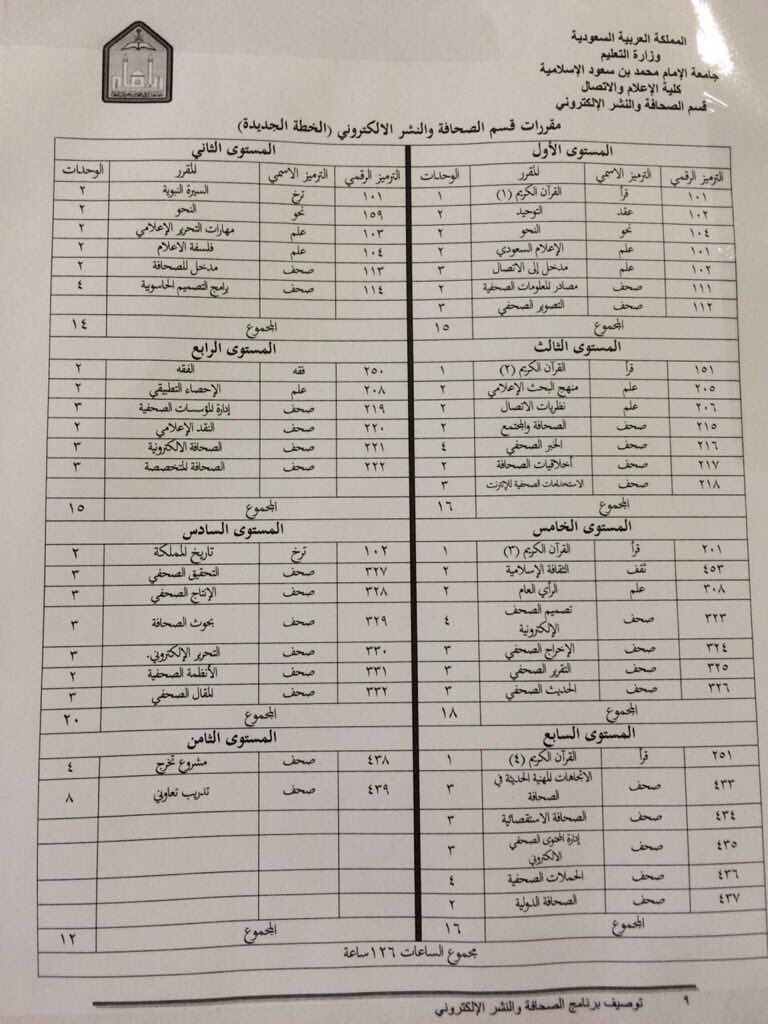 المملكة العربية السعودية
وزارة التعليم
جامعة الإمام محمد بن سعود الإسلامية
كلية الإعلام والاتصال
قسم الصحافة والنشر الإلكتروني
مقررات قسم الصحافة والنشر الالكتروني (الخطة الجديدة)
المستوى الأول
الترميز الرقمي الترميز الاسمي المقرر الوحدات
١٠١ قرأ القرآن الكريم (١) ١
١٠٢ عقد التوحيد ٢
١٠٤ نحو النحو ٢
١٠١ علم الإعلام السعودي ٢
١٠٢ علم مدخل إلى الاتصال ٣
١١١ صحف مصادر المعلومات الصحفية ٢
١١٢ صحف التصوير الصحفي ٣
المجموع ١٥
المستوى الثاني
الترميز الرقمي الترميز الاسمي المقرر الوحدات
١٠١ ترخ السيرة النبوية ٢
١٥٩ نحو النحو ٢
١٠٣ علم مهارات التحرير الإعلامي ٢
١٠٤ علم فلسفة الاعلام ٢
١١٣ صحف مدخل للصحافة ٢
١١٤ صحف برامج التصميم الحاسوبية ٤
المجموع ١٤
المستوى الثالث
١٥١ قرأ القرآن الكريم (٢) ١
٢٠٥ علم منهج البحث الإعلامي ٢
٢٠٦ علم نظريات الاتصال ٢
٢١٥ صحف الصحافة والمجتمع ٢
٢١٦ صحف الخبر الصحفي ٤
٢١٧ صحف أخلاقيات الصحافة ٢
٢١٨ صحف الاستخدامات الصحفية للإنترنت ٣
المجموع ١٦
المستوى الرابع
٢٥٠ فقه الفقه ٢
٢٠٨ علم الإحصاء التطبيقي ٢
٢١٩ صحف إدارة المؤسسات الصحفية ٣
٢٢٠ صحف النقد الإعلامي ٢
٢٢١ صحف الصحافة الالكترونية ٣
٢٢٢ صحف الصحافة المتخصصة ٣
المجموع ١٥
المستوى الخامس
٢٠١ قرأ القرآن الكريم (٣) ١
٤٥٣ ثقف الثقافة الإسلامية ٢
٣٠٨ علم الرأي العام ٢
٣٢٣ صحف تصميم الصحف الإلكترونية ٤
٣٢٤ صحف الإخراج الصحفي ٣
٣٢٥ صحف التقرير الصحفي ٣
٣٢٦ صحف الحديث الصحفي ٣
المجموع ١٨
المستوى السادس
١٠٢ ترخ تاريخ المملكة ٢
٣٢٧ صحف التحقيق الصحفي ٣
٣٢٨ صحف الإنتاج الصحفي ٣
٣٢٩ صحف بحوث الصحافة ٣
٣٣٠ صحف التحرير الإلكتروني. ٣
٣٣١ صحف الأنظمة الصحفية ٢
٣٣٢ صحف المقال الصحفي ٣
المجموع ٢٠
المستوى السابع
٢٥١ قرأ القرآن الكريم (٤) ١
٤٣٣ صحف الاتجاهات المهنية الحديثة في الصحافة ٣
٤٣٤ صحف الصحافة الاستقصائية ٣
٤٣٥ صحف إدارة المحتوى الصحفي الالكتروني ٣
٤٣٦ صحف الحملات الصحفية ٤
٤٣٧ صحف الصحافة الدولية ٢
المجموع ١٦
المستوى الثامن
٤٣٨ صحف مشروع تخرج ٤
٤٣٩ صحف تدريب تعاوني ٨
المجموع ١٢
مجموع الساعات ١٢٦ساعة
٩ توصيف برنامج الصحافة والنشر الإلكتروني